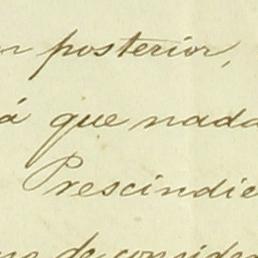 posterior,
á que nada
Prescindie
de consider